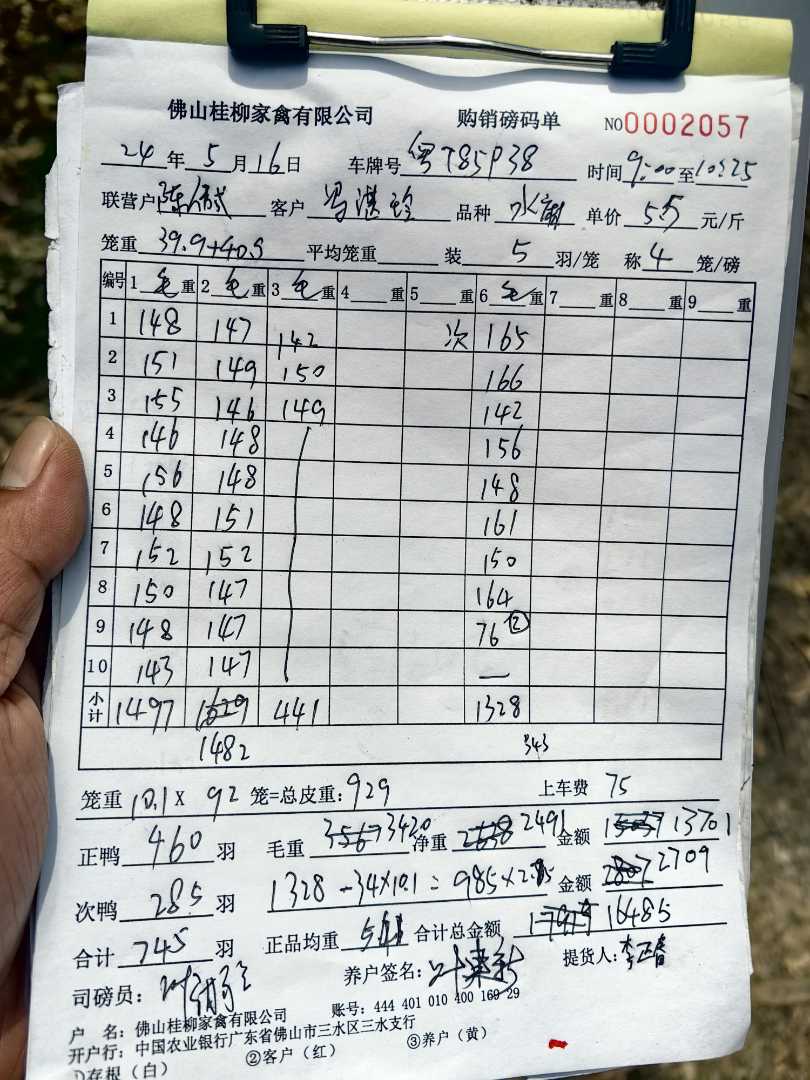 佛山桂柳家禽有限公司 购销磅码单 NO0002057
24 年 5 月 16 日 车牌号 粤T85P38 时间 9:00 至 10:25
联营户 陈 客户 冯 品种 水 单价 5.5 元/斤
笼重 39.9+40.9 平均笼重 装 5 羽/笼 称 4 笼/磅
编号 1 毛 重 2 毛 重 3 毛 重 4 重 5 重 6 毛 重 7 重 8 重 9 重
1 148 147 142 次 165
2 151 149 150 166
3 155 146 149 142
4 146 148 156
5 156 148 148
6 148 151 161
7 152 152 150
8 150 147 164
9 148 147 76 ②
10 143 147 —
小计 1497 1629 441 1328
1482 343
笼重 10.1 X 92 笼=总皮重: 929 上车费 75
正鸭 460 羽 毛重 3567 3420 净重 2638 2491 金额 13701
次鸭 285 羽 1328 - 34×10.1 = 985 × 金额 2807 2709
合计 745 羽 正品均重 合计总金额 16485
司磅员: 叶 养户签名: 叶 提货人: 李正春
户 名: 佛山桂柳家禽有限公司 账号: 444 401 010 400 169 29
开户行: 中国农业银行广东省佛山市三水区三水支行
①存根（白） ②客户（红） ③养户（黄）